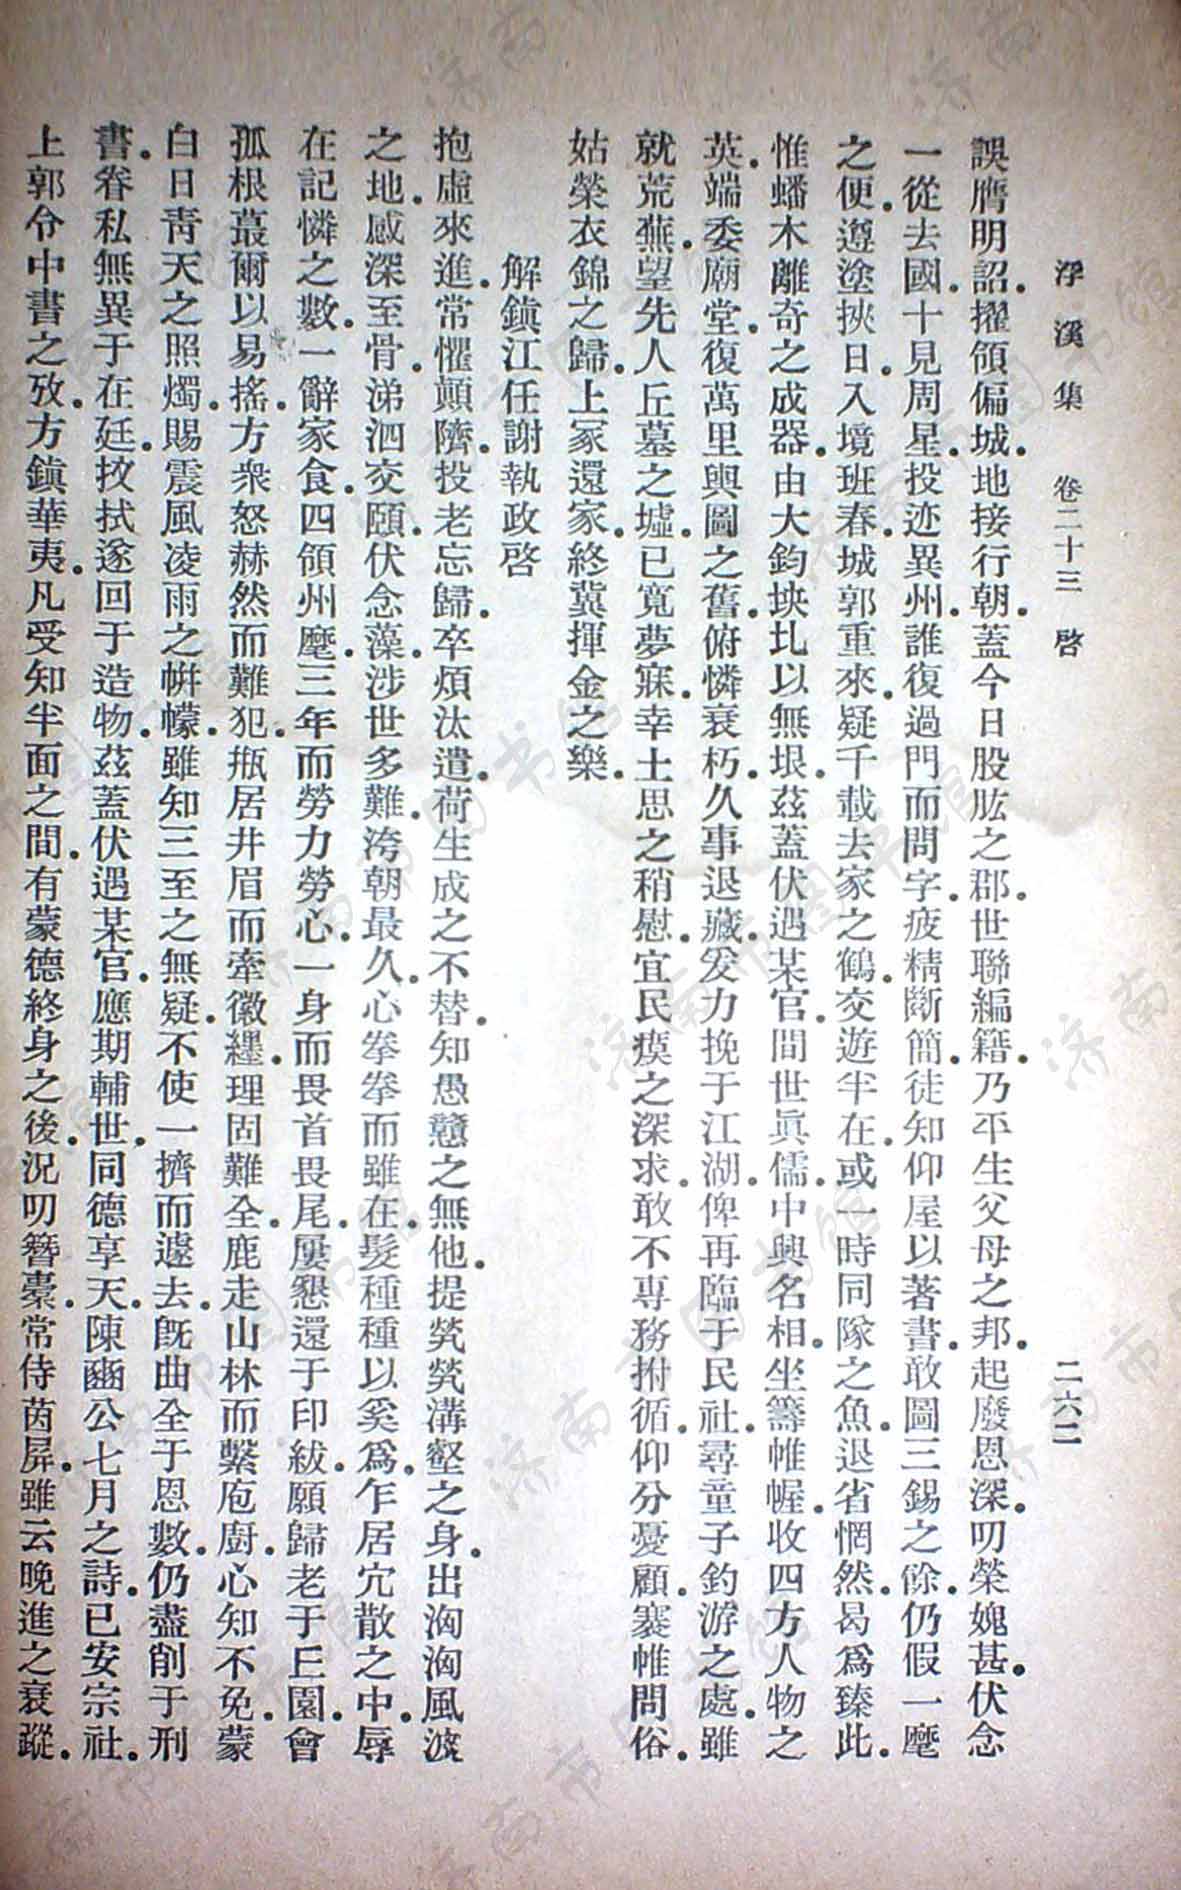 浮溪集 卷二十三 啓 二六二
誤膺明詔．擢領偏城．地接行朝．蓋今日股肱之郡．世聯編籍．乃平生父母之邦．起廢恩深．叨榮媿甚．伏念
一從去國．十見周星．投迹異州．誰復過門而問字．疲精斷簡．徒知仰屋以著書．敢圖三錫之餘．仍假一麾
之便．遵塗挾日．入境班春．城郭重來．疑千載去家之鶴．交遊半在．或一時同隊之魚．退省惘然．曷爲臻此．
惟蟠木離奇之成器．由大鈞坱圠以無垠．茲蓋伏遇某官．間世眞儒．中興名相．坐籌帷幄．收四方人物之
英．端委廟堂．復萬里輿圖之舊．俯憐衰朽．久事退藏．发力挽于江湖．俾再臨于民社．尋童子釣游之處．雖
就荒蕪．望先人丘墓之墟．已寬夢寐．幸士思之稍慰．宜民瘼之深求．敢不專務拊循．仰分憂顧．褰帷問俗．
姑榮衣錦之歸．上冢還家．終冀揮金之樂．
解鎭江任謝執政啓
抱虛來進．常懼顛隮．投老忘歸．卒煩汰遣．荷生成之不替．知愚戇之無他．提煢煢溝壑之身．出洶洶風波
之地．感深至骨．涕泗交頤．伏念藻．涉世多難．洿朝最久．心拳拳而雖在．髮種種以奚爲．乍居宂散之中．辱
在記憐之數．一辭家食．四領州麾．三年而勞力勞心．一身而畏首畏尾．屢懇還于印紱．願歸老于丘園．會
孤根蕞爾以易搖．方衆怒赫然而難犯．甁居井眉而牽徽纆．理固難全．鹿走山林而繫庖廚．心知不免．蒙
白日靑天之照燭．賜震風凌雨之帡幪．雖知三至之無疑．不使一擠而遽去．旣曲全于恩數．仍盡削于刑
書．眷私無異于在廷．抆拭遂回于造物．茲蓋伏遇某官．應期輔世．同德享天．陳豳公七月之詩．已安宗社．
上郭令中書之攷．方鎭華夷．凡受知半面之間．有蒙德終身之後．況叨簪橐．常侍茵屏．雖云晚進之衰蹤．